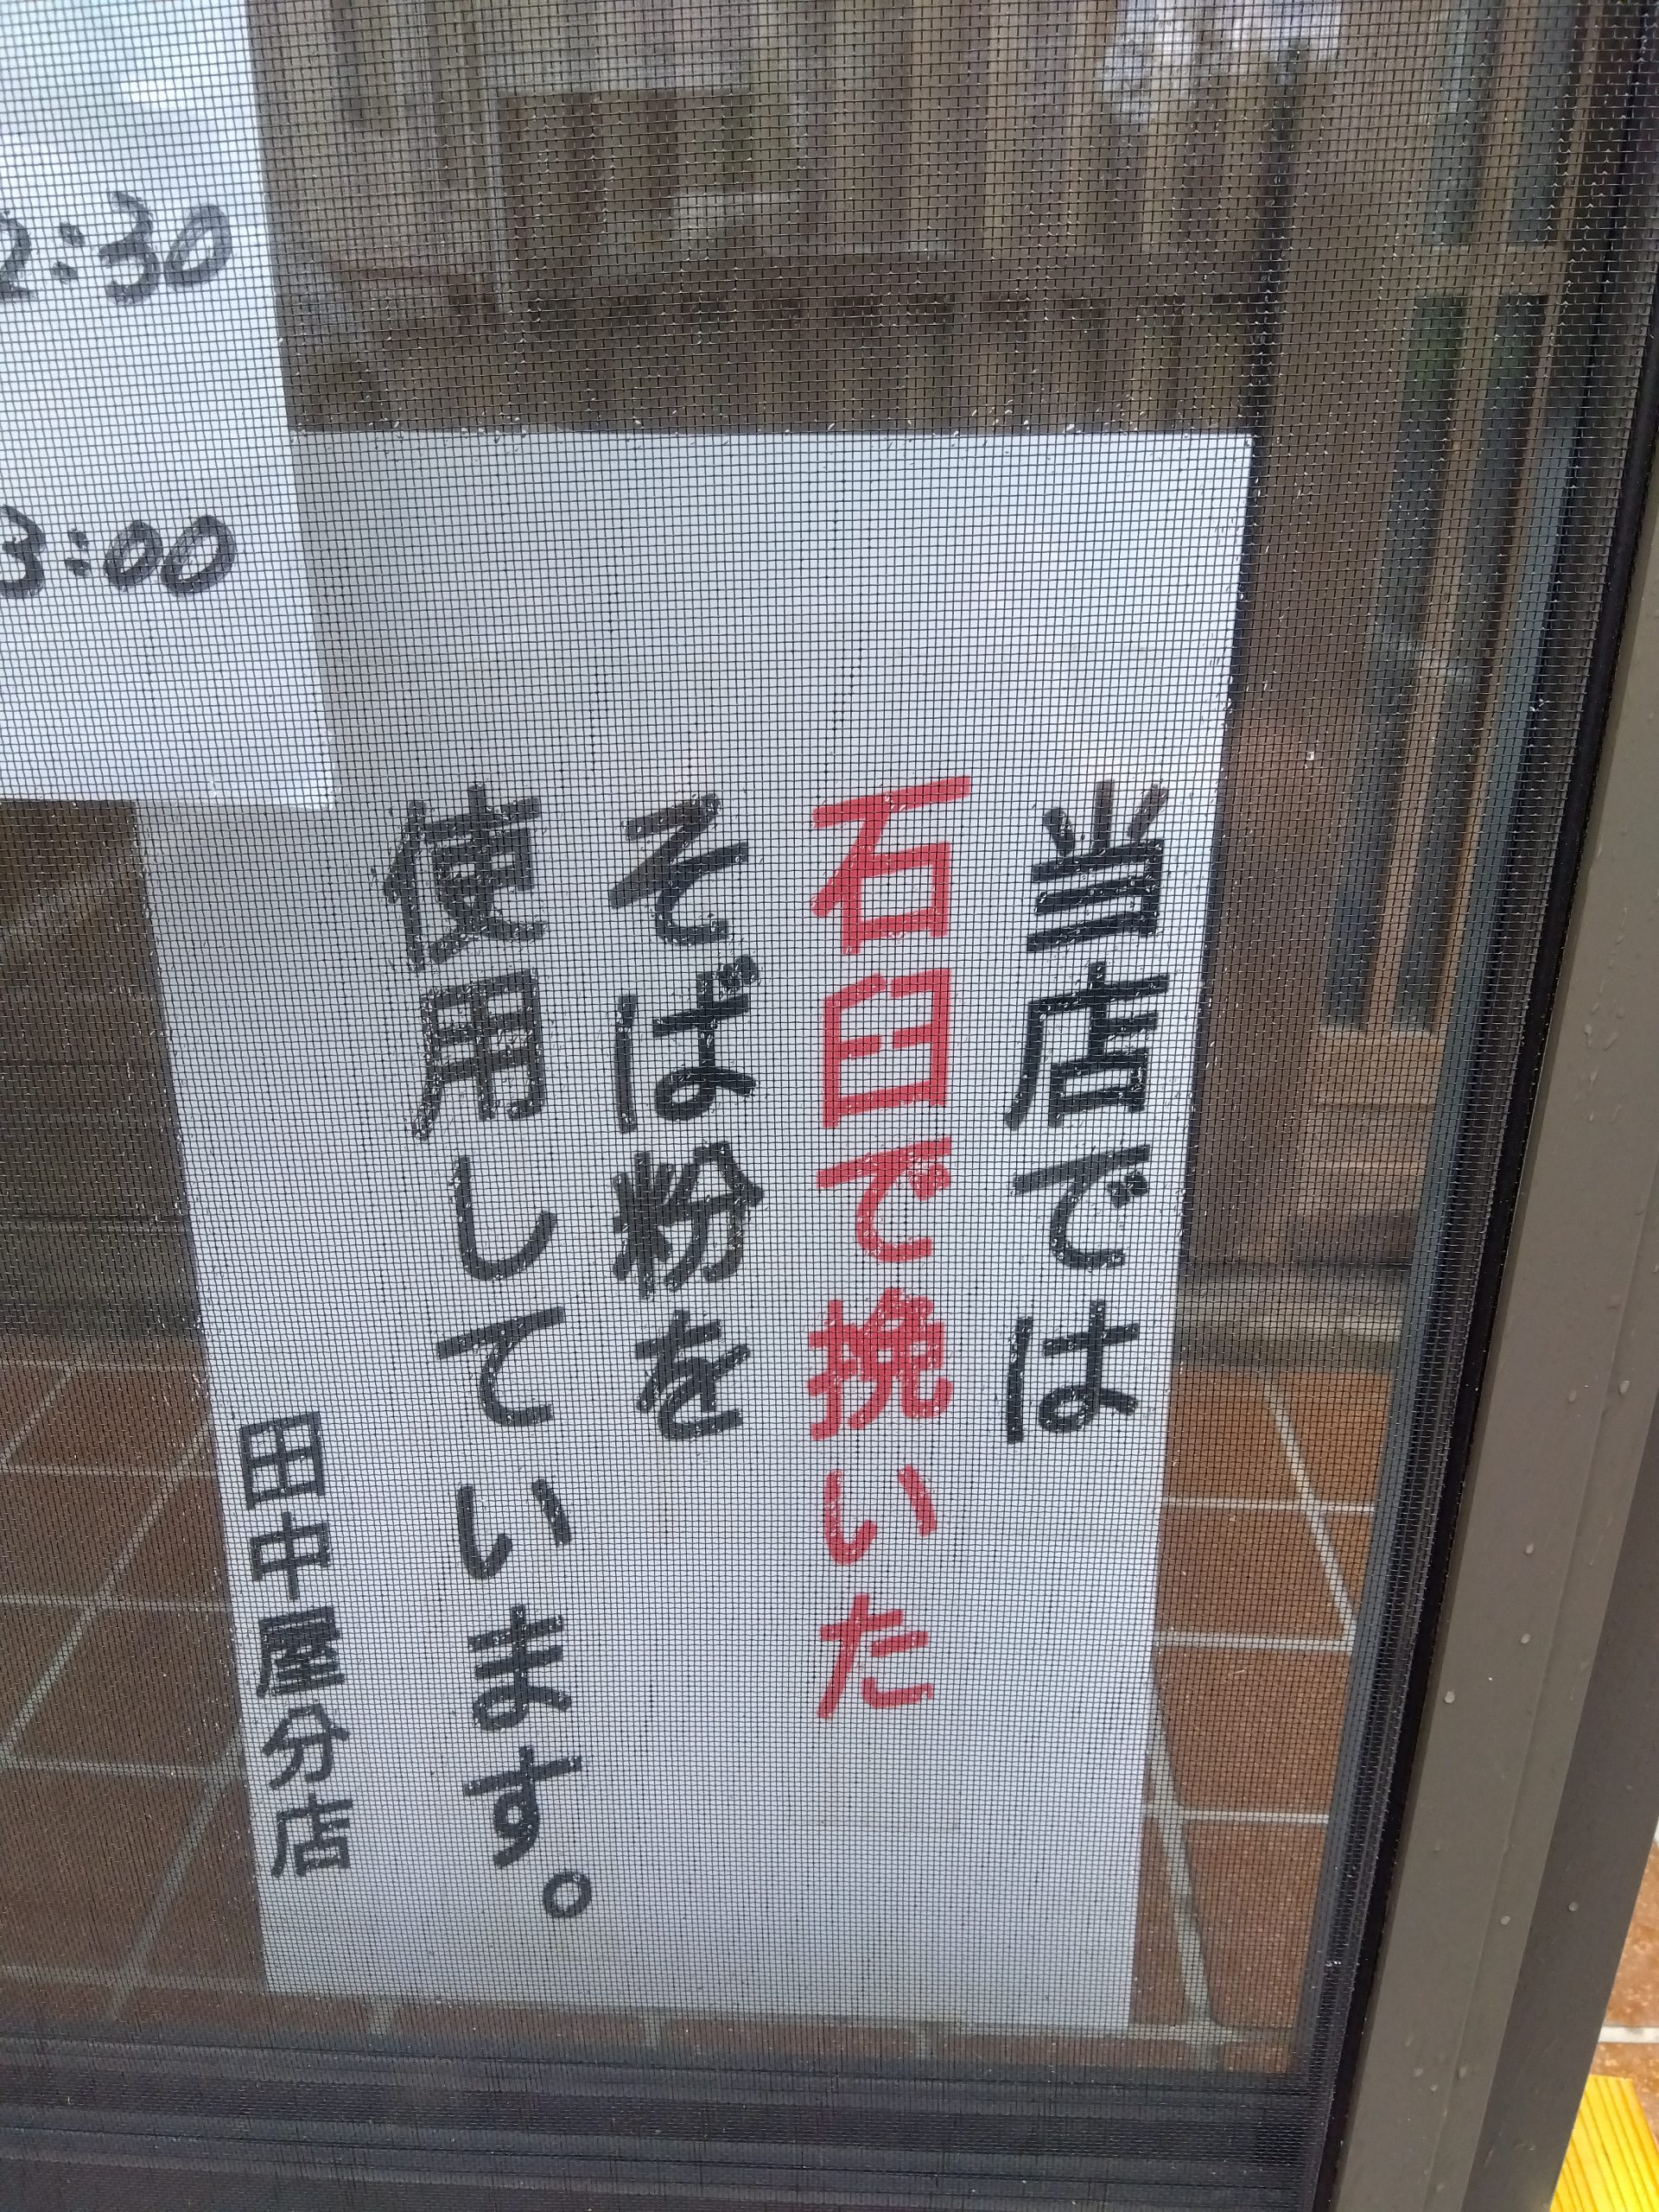 2:30
3:00
当店では
石臼で挽いた
そば粉を
使用しています。
田中屋分店